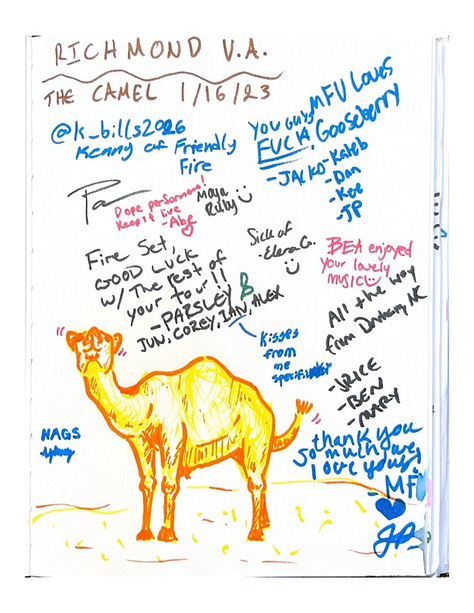 RICHMOND V.A.
THE CAMEL 1/16/23
@k_bills2026
Kenny of Friendly
Fire
YOU GUYS
FUCK
-JACKO
MFU LOVES
Gooseberry
-Kaleb
-Dan
-Kee
-JP
Dope performers!
Keep it live
-Abe
Maya
Ruby
Sick of
-Elena C.
Fire Set,
GOOD LUCK
w/ The rest of
your tour!!
-PARSLEY
JUN, COREY, IAN, ALEX
BEA enjoyed
your lovely
music
Kisses
from
me
specifically
All the way
from
-JRICE
-BEN
-MARY
NAGS
thank you
so much we
love yous!
-MFU
JP